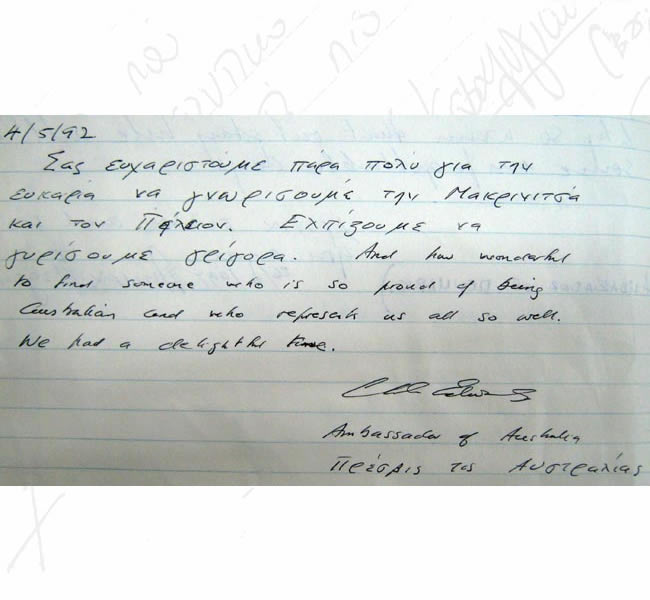 4/5/92
Σας ευχαριστούμε πάρα πολύ για την
ευκαρία να γνωρίσουμε την Μακρινιτσά
και τον Πήλιον. Ελπίζουμε να
γυρίσουμε γρίγορα. And how wonderful
to find someone who is so proud of being
Australian and who represents us all so well.
We had a delightful time.
Ambassador of Australia
Πρέσρις τας Αυστραλίας